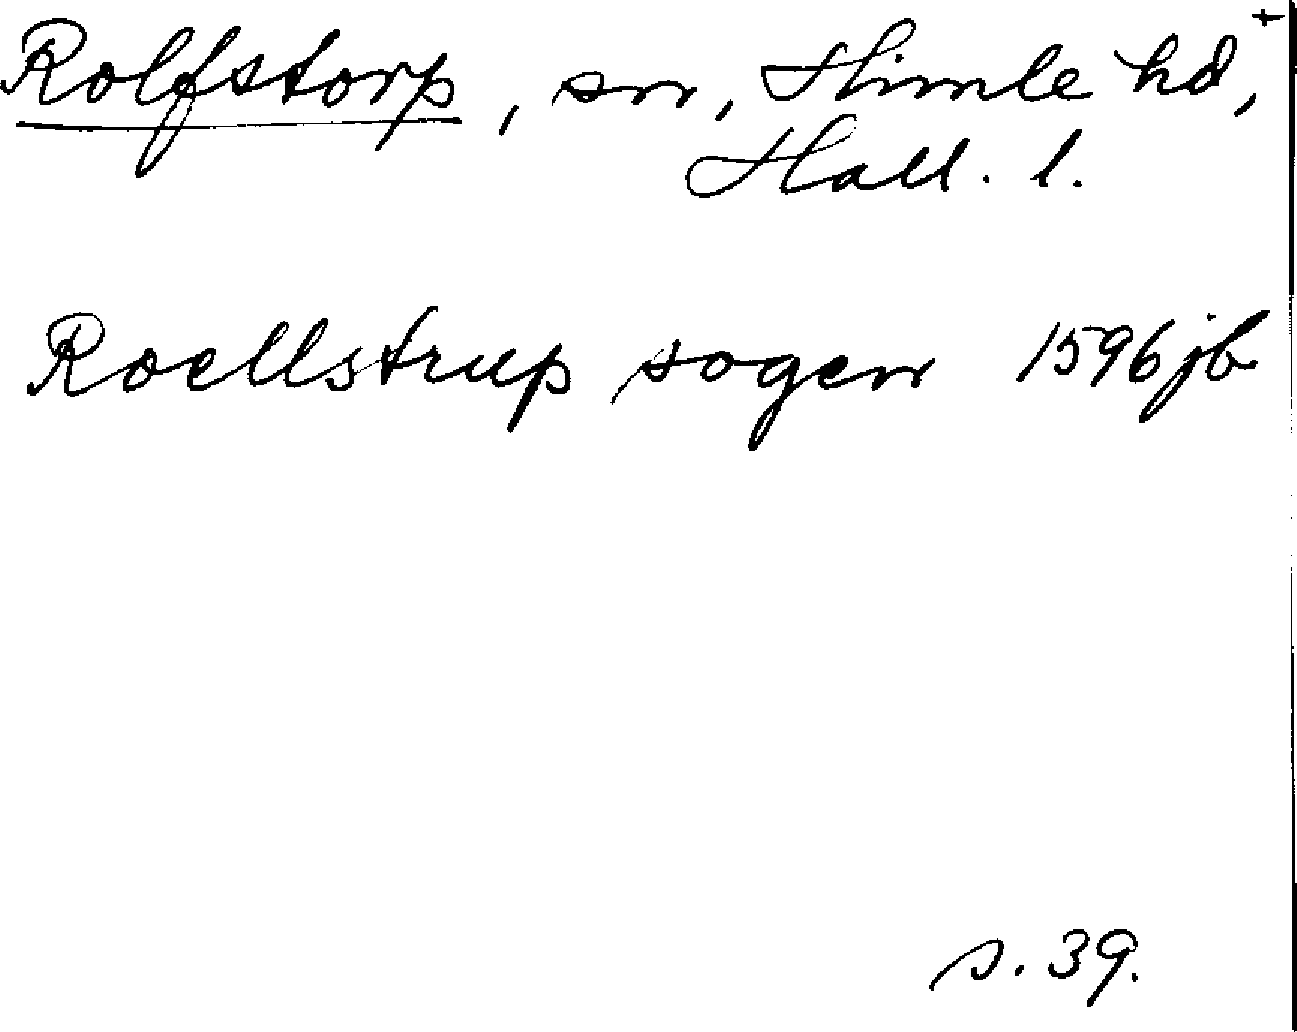 Rolfstorp, sn, Himle hd,+
Hall. l.
Roellstrup sogen 1596 jb
s. 39.